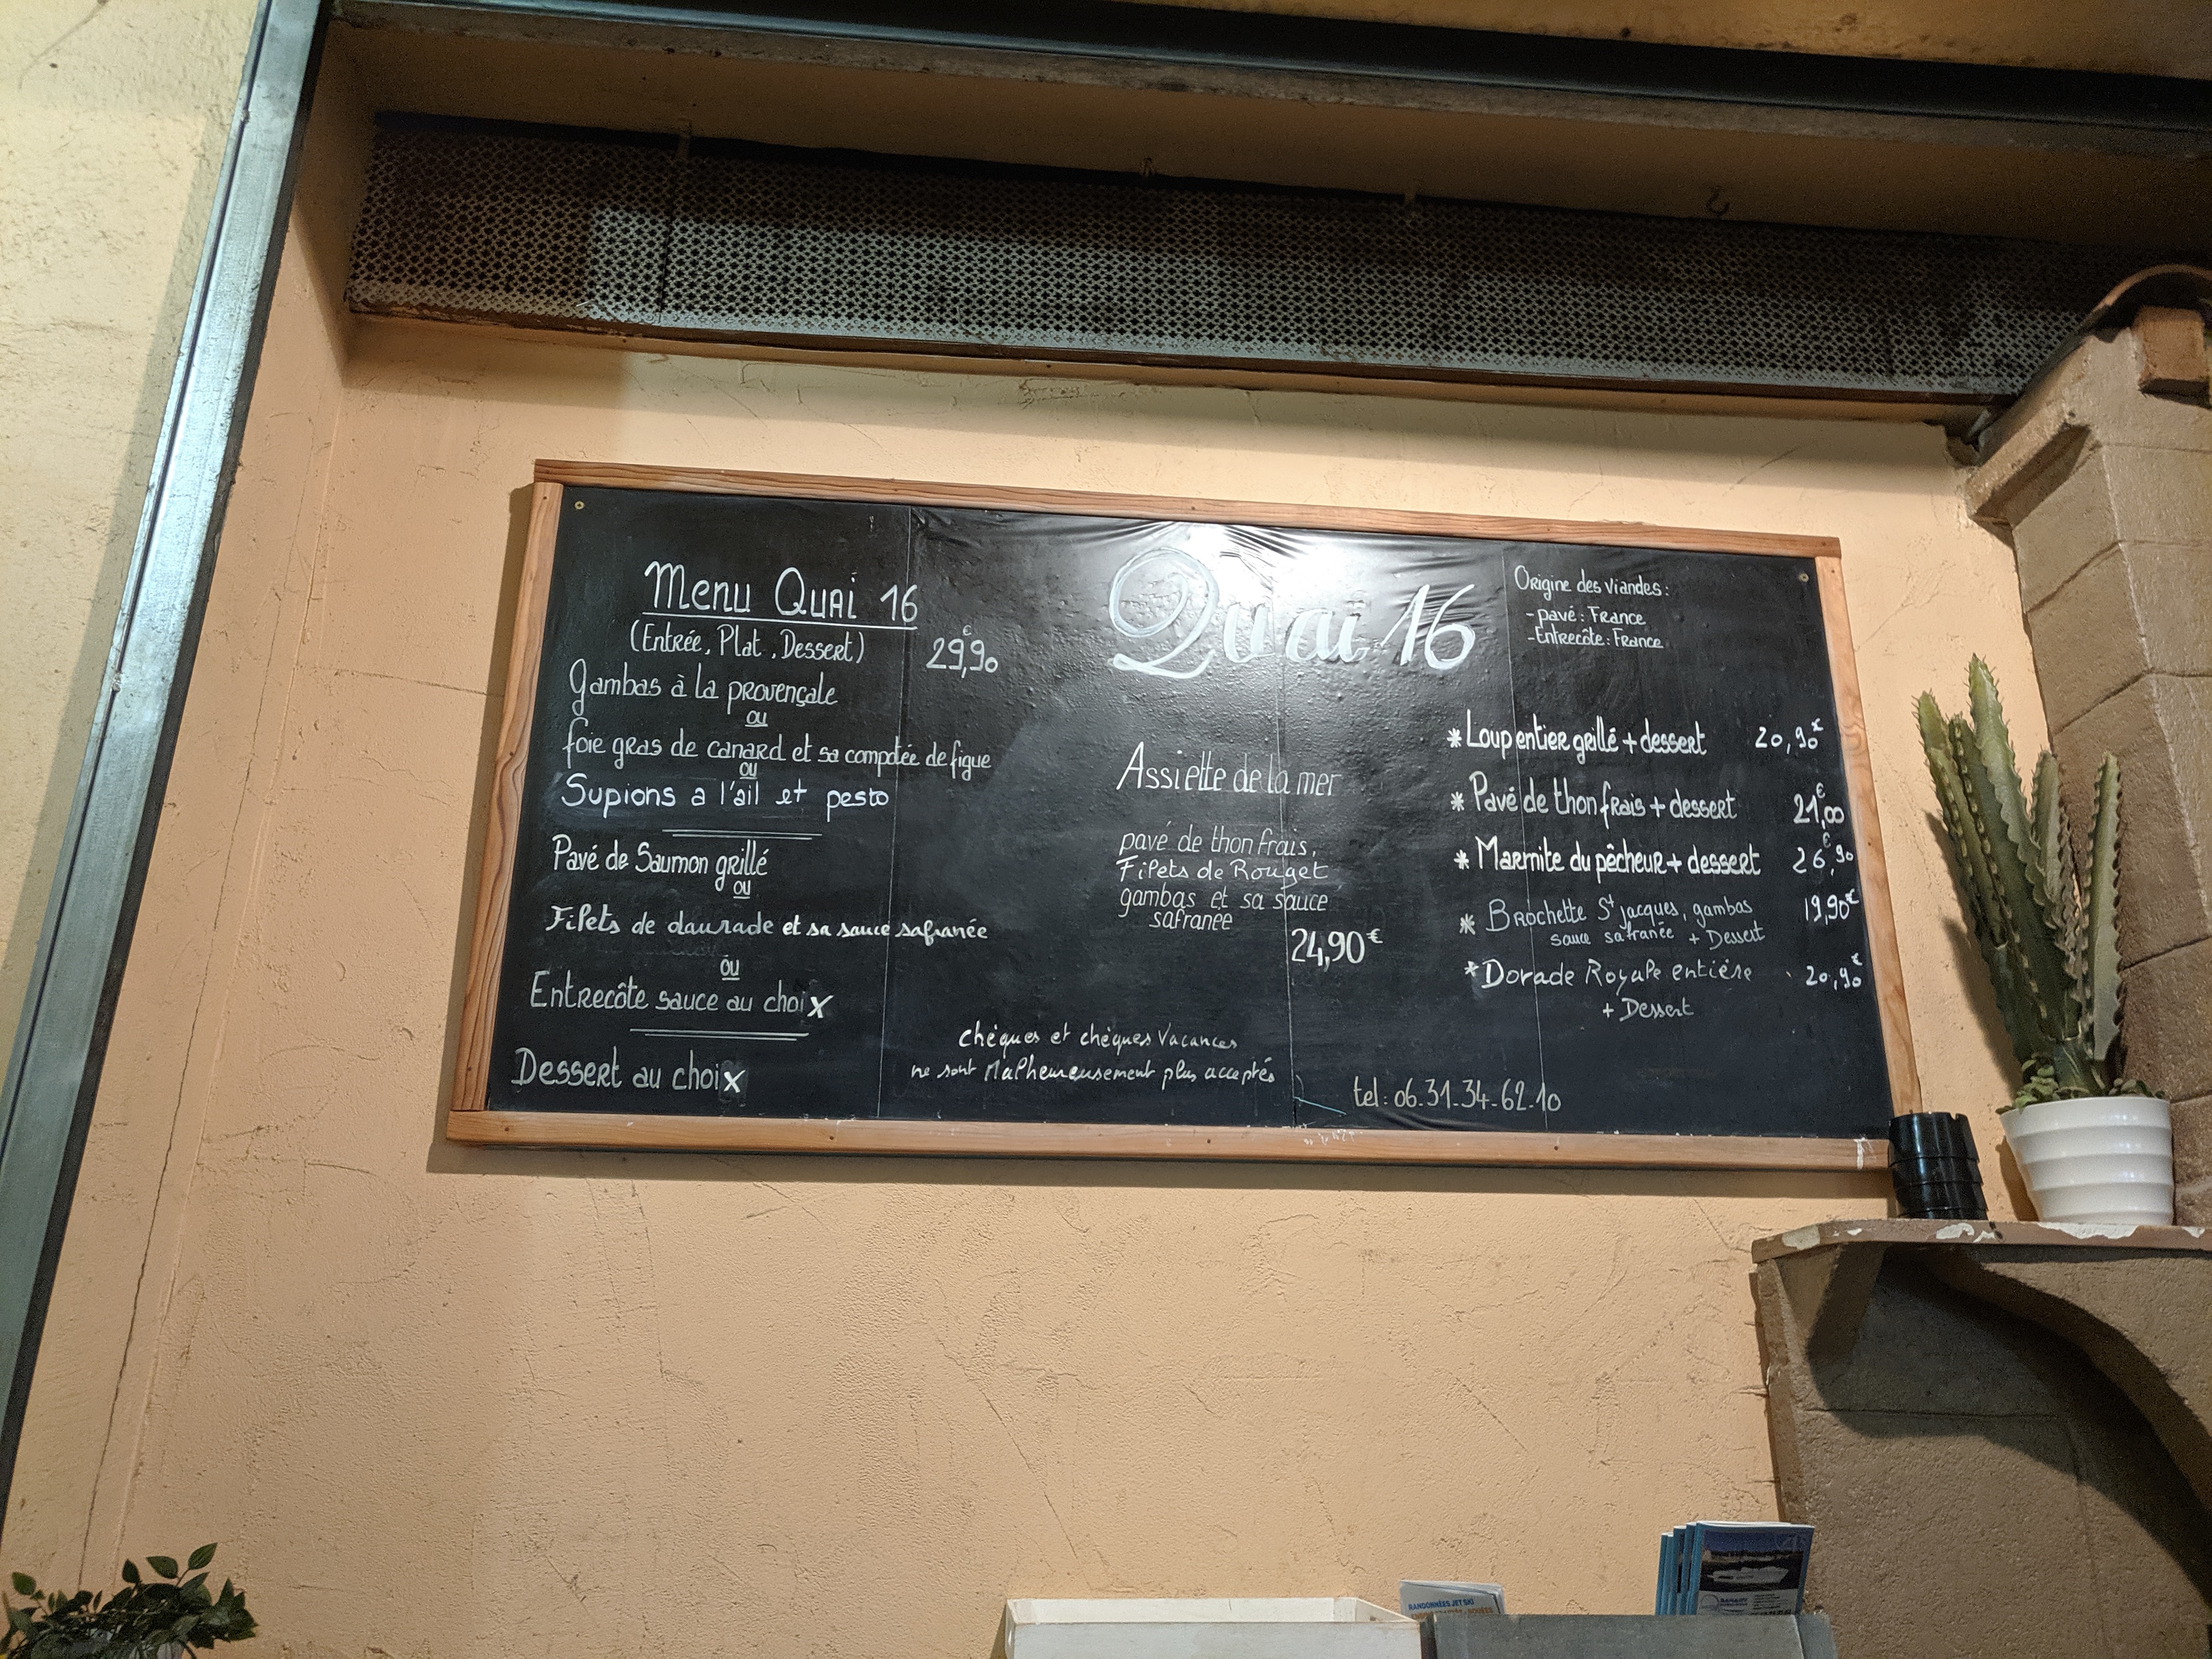 Menu Quai 16
(Entrée, Plat, Dessert) 29,90€
Gambas à la provençale
ou
foie gras de canard et sa compotée de figue
ou
Supions a l'ail et pesto
Pavé de Saumon grillé
ou
Filets de daurade et sa sauce safranée
ou
Entrecôte sauce au choix
Dessert au choix
Quai 16
Assiette de la mer
pavé de thon frais,
Filets de Rouget
gambas et sa sauce
safranée
24,90€
chèques et chèques Vacances
ne sont Malheureusement plus acceptés
Origine des viandes:
- pavé: France
- Entrecôte: France
* Loup entier grillé + dessert 20,90€
* Pavé de thon frais + dessert 21,00€
* Marmite du pêcheur + dessert 26,90€
* Brochette St jacques, gambas 19,90€
sauce safranée + Dessert
* Dorade Royale entière 20,90€
+ Dessert
tel: 06.31.34.62.10
RANDONNÉES JET SKI